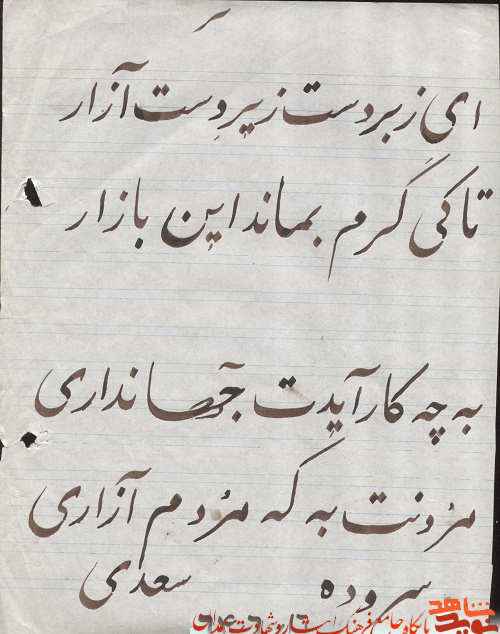 ای زبردست زیردست آزار
تا کی گرم بماند این بازار
به چه کار آیدت جهانداری
مردنت به که مردم آزاری
سروده سعدی
نوید شاهد
پایگاه جامع فرهنگ ایثار و شهادت